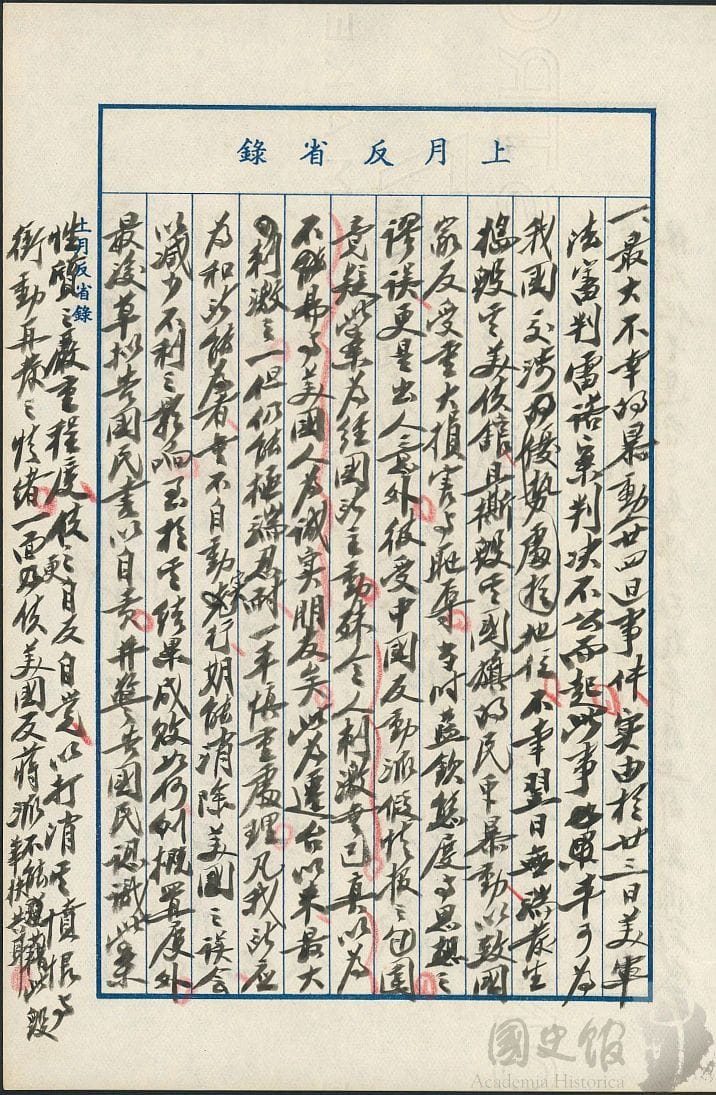 上月反省錄
一、最大不幸的暴動廿四日事件實由於廿三日美軍
法審判雷諾案判決不公而起此事單本可為
我國交涉優勢處於地位不幸翌日無端發生
搗毀其美使館且撕毀其國旗的民眾暴動以致國
家反受重大損害與恥辱當時藍欽態度與思想之
謬誤更是出人意外彼受中國反動派假情報之包圍
竟疑此案為經國所主動殊令人刺激無已真以為
不能再與美國人為誠實朋友矣此為遷台以來最大
的刺激之一但仍能極端忍耐一本慎重處理凡我所應
為和所能為者無不自動實行期能消除美國之誤會
以減少不利之影響至於其結果成敗如何則概置度外
最後草擬告國民書以自責并警告國民認識此案
性質之嚴重程度使之更自反自覺以打消其憤恨與
衝動再發之情緒一面乃使美國反蔣派不能藉此毀
上月反省錄
國史館
Academia Historica